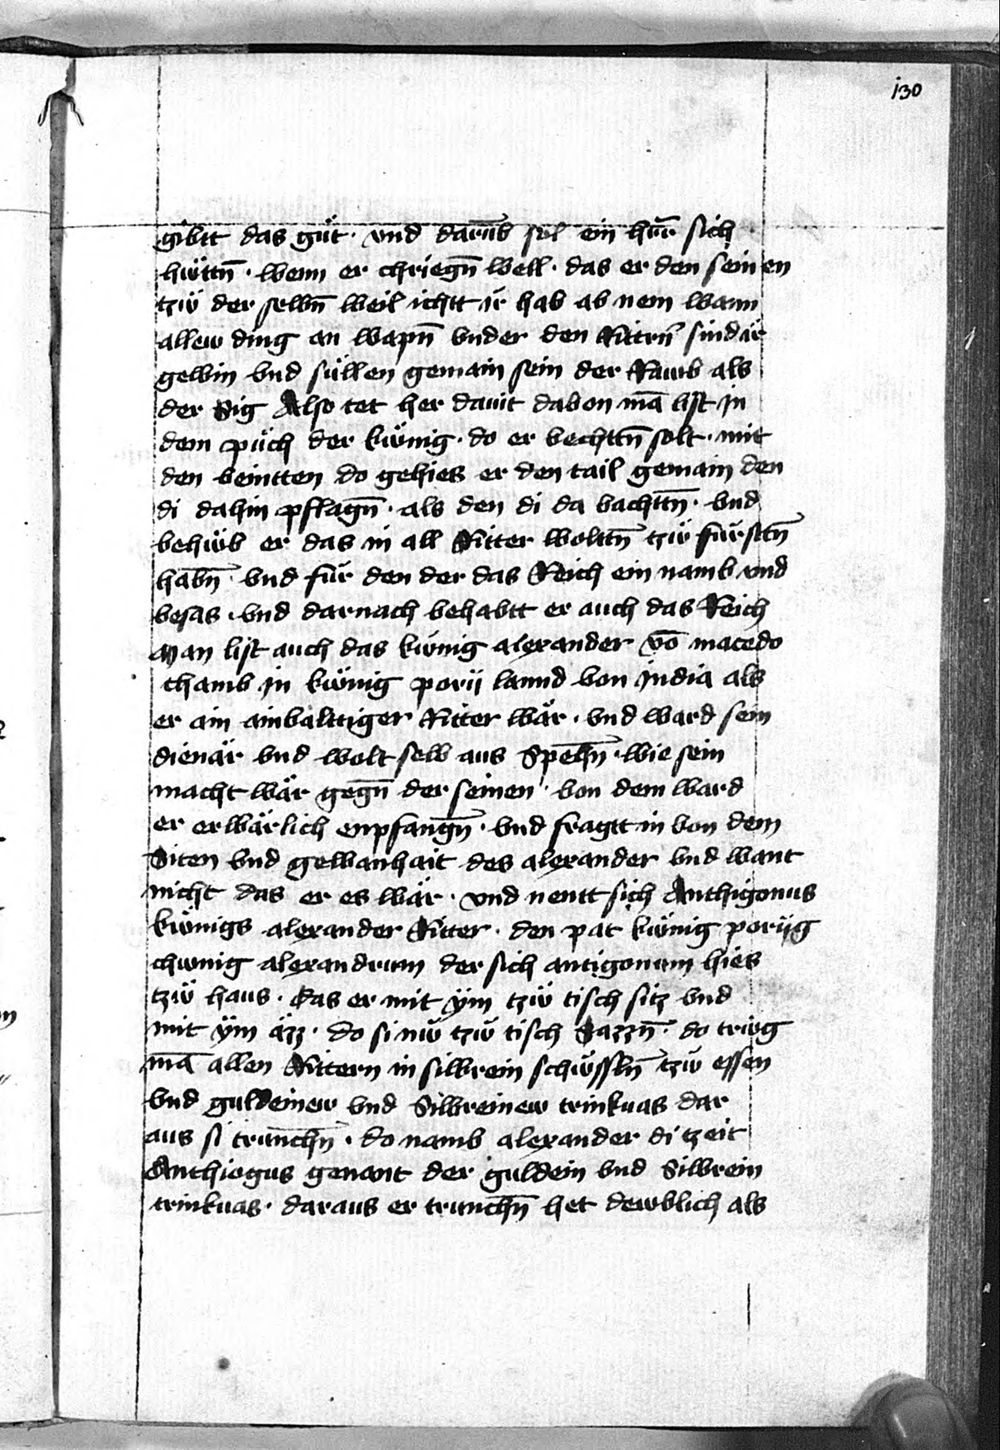 130
gibtt das guͤt · vnd darūb sol ein hūr sich
huͤttn̄ · wenn er chriegn̄ well · das er den seinen
tzuͤ der selbn̄ weil ichtt ir hab ab nem wann
allew ding an wapn̄ vnder den Rittrn̄ sind ir
gewin vnd suͤllen gemain sein der Rawb als
der Sig Also tet her dauit dauon mā list in
dem puͤch der kuͤnig · do er vechttn̄ solt · mit
den veintten do gehies er den tail gemain den
di dahin pflagn̄ · als den di da vachttn̄ · vnd
behuͤb er das in all Ritter woltn̄ tzuͤ fürstn̄
habn̄ · vnd für den der das Reich ein namb vnd
besas · vnd darnach behabtt er auch das Reich
Man list auch das kuͤnig alexander vō macedo
chamb in kuͤnig porii lannd von india als
er ain ainvalttiger Ritter wär · vnd ward sein
dienär vnd wolt selb aus Spehn̄ · wie sein
macht wär gegn̄ der seinen · von dem ward
er erwärlich enpfangn̄ · vnd fragtt in von dem
Siten vnd gewanhait des alexander vnd want
nicht das er es wär · vnd nentt sich Anthigonus
kuͤnigs alexander Ritter · den pat kuͤnig poriig
chunig alexandrum der sich antigonum hies
tzuͤ haus · das er mit ÿm tzuͤ tisch sitz vnd
mit ÿm äzz · do si nuͤ tzuͤ tisch Sazzn̄ do truͤg
mā allen Rittern in silbrein schuͤssln̄ tzuͤ essen
vnd guldeinew vnd Silbreinew trinkuas dar
aus si trunchn̄ · do namb alexander di tzeit
Anthiogus genant der guldein vnd Silbrein
trinkuas · daraus er trunchn̄ het dewblich als